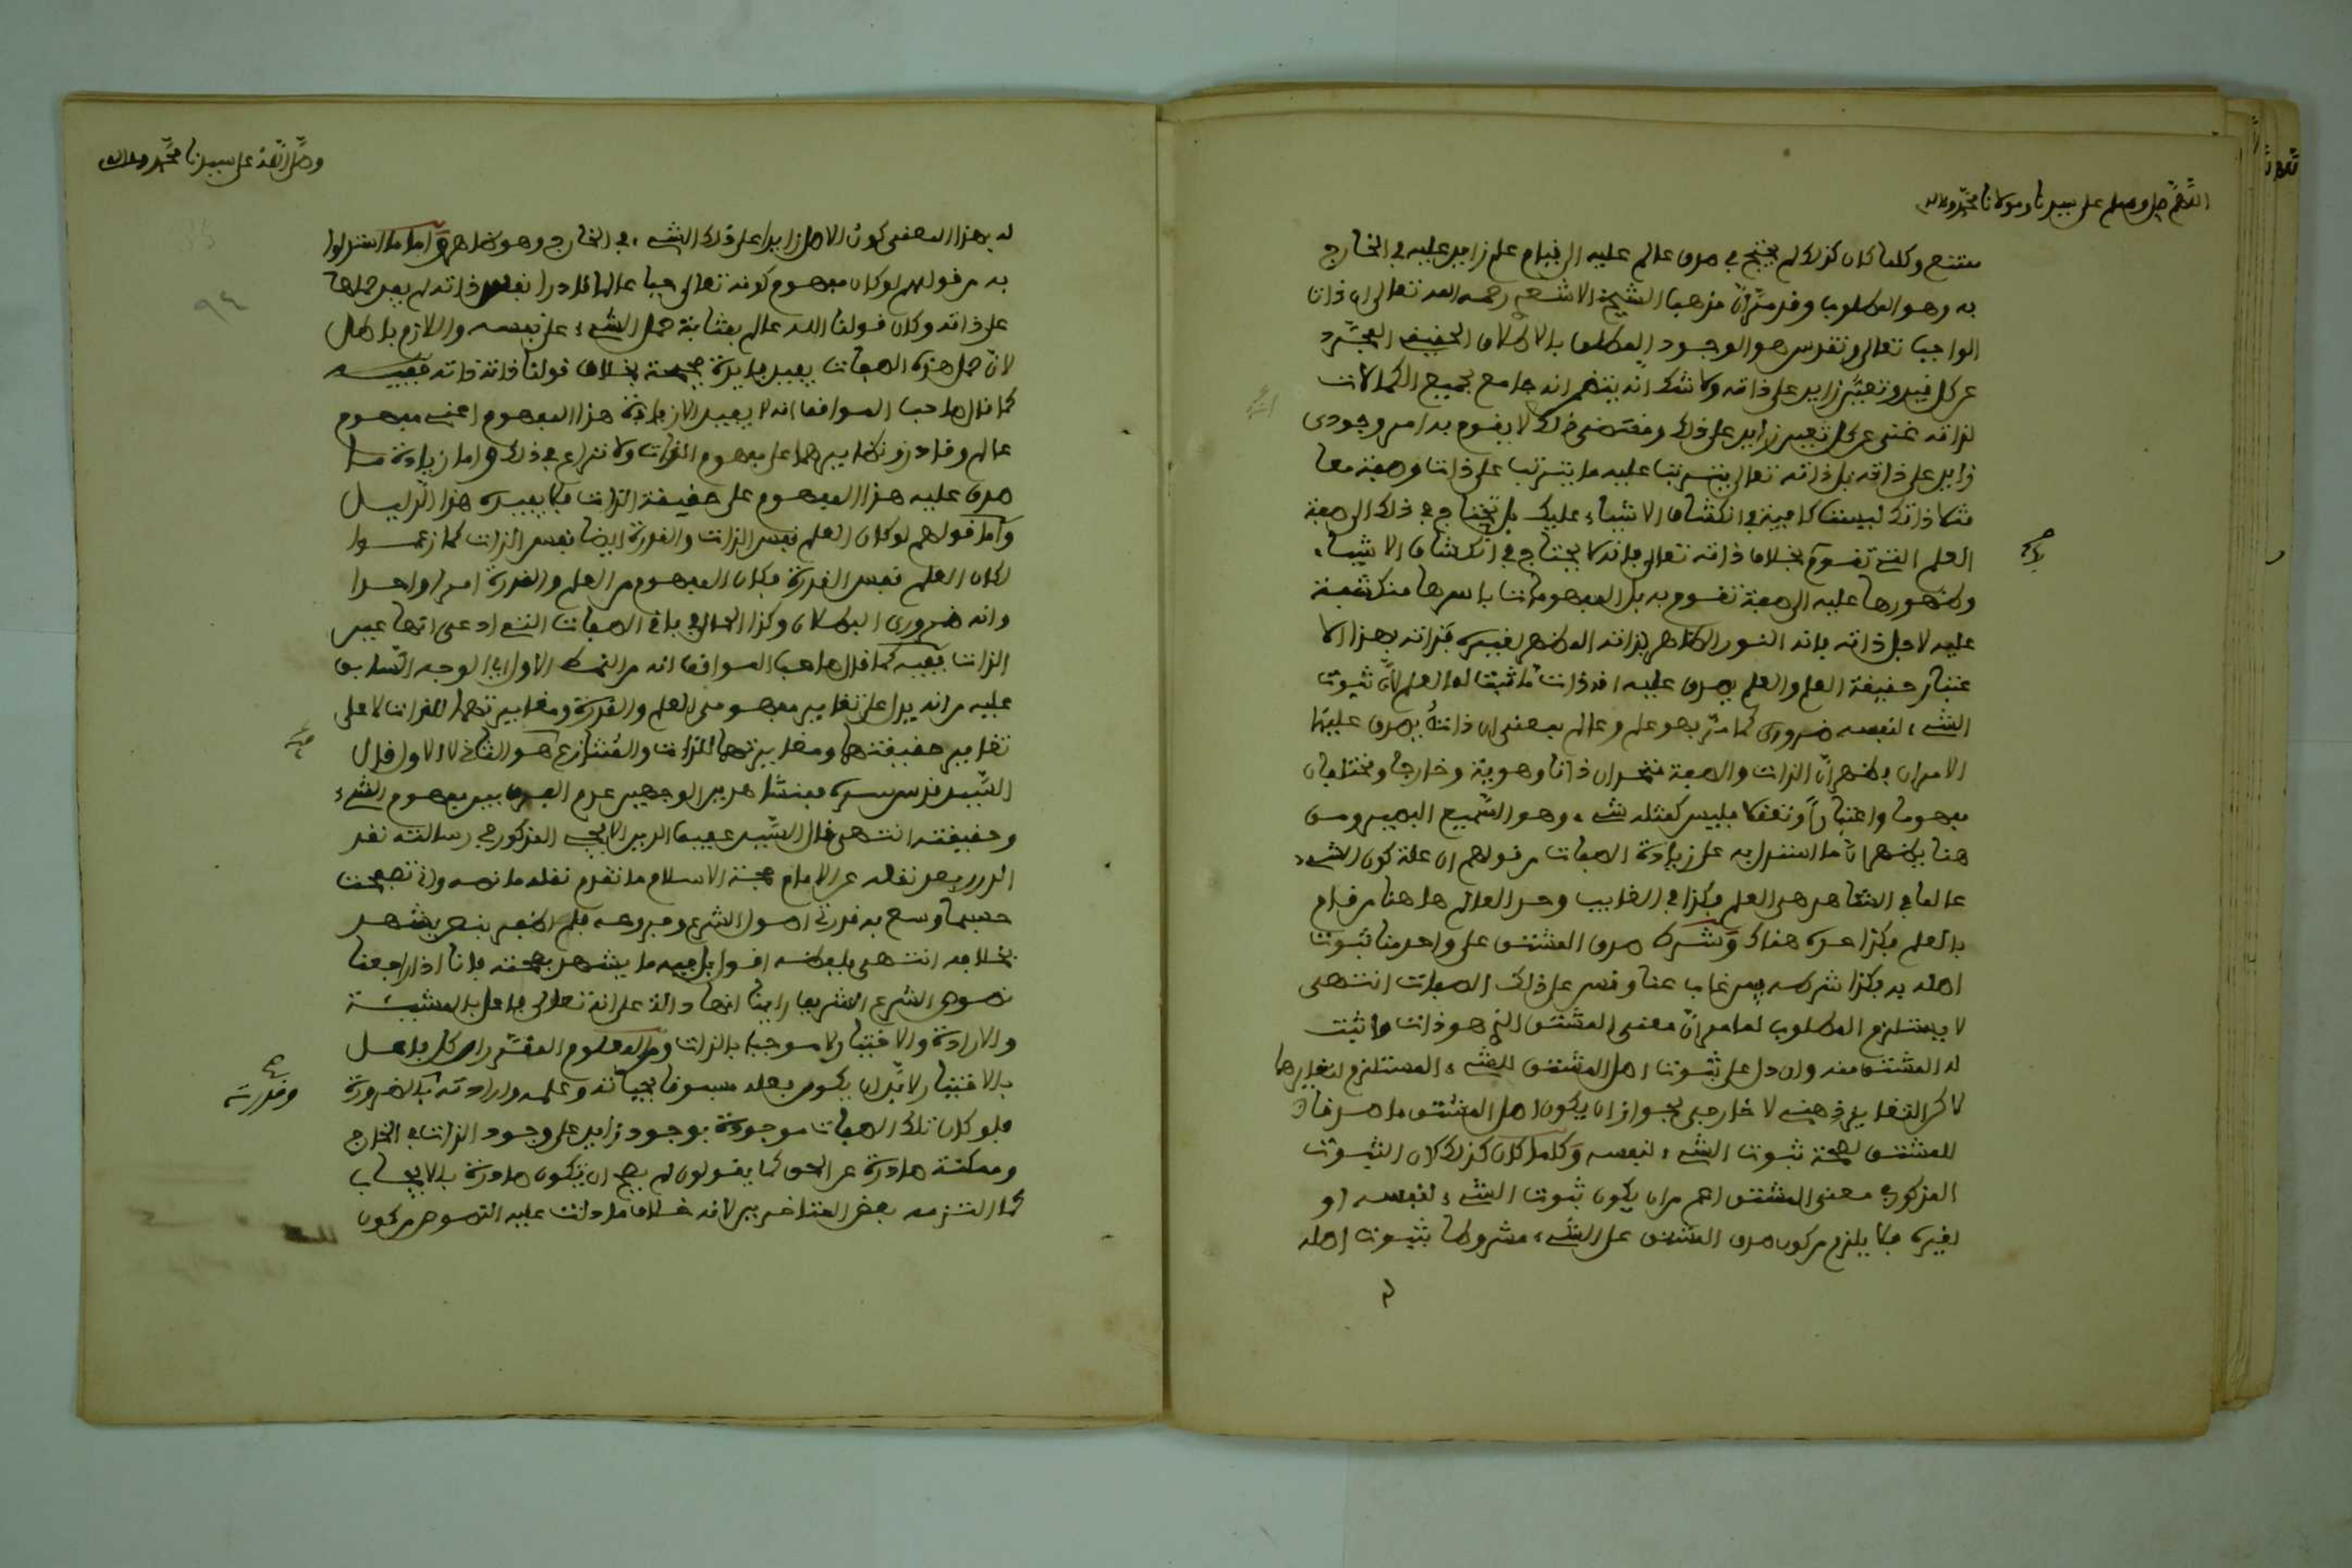 اللهم صل وسلم على سيدنا ومولانا محمد وءاله
ممتنع وكلما كان كذلك لم يحتج في صدق عالم عليه الى قيام علم زايد عليه في الخارج
به وهو المطلوب وقد مر أن مذهب الشيخ الاشعري رحمه الله تعالى ان ذات
الواجب تعالى وتقدس هو الوجود المطلق بالاطلاق الحقيقي المجرد
عن كل قيد وتعين زايد على ذاته ولا شك أنه يتضمن انه جامع لجميع الكمالات
لذاته غني عن كل تعين زايد على ذلك ومقتضى ذلك لا يقوم به امر وجودي
زايد على ذاته بل ذاته تعالى يترتب عليه ما يترتب على ذات وصفة معا
مثلا ذاتك ليست كافية في انكشاف الاشياء عليك بل تحتاج في ذلك الى صفة
العلم التي تقوم بك بخلاف ذاته تعالى فانه لا يحتاج في انكشاف الاشياء
وظهورها عليه الى صفة تقوم به بل المفهومات باسرها منكشفة
عليه لاجل ذاته فانه النور الظاهر بذاته المظهر لغيره فذاته بهذا الا
عتبار حقيقة العلم والعلم يصدق عليه انه ذات ما ثبت لها العلم لأن ثبوت
الشيء لنفسه ضروري كما مر فهو علم وعالم بمعنى ان ذاته يصدق عليها
الامران فظهر أن الذات والصفة متحدان ذاتا وهوية وخارجا ومختلفان
مفهوما واعتبارا وتعقلا فليس كمثله شيء وهو السميع البصير ومن
هنا يظهر أن ما استدل به على زيادة الصفات من قولهم ان علة كون الشيء
عالما في الشاهد هي العلم فكذا في الغايب وحد العالم ها هنا من قام
به العلم فكذا حده هناك وشرط صدق المشتق على واحد منا ثبوت
اصله به فكذا شرطه فيمن غاب عنا وقس على ذلك الصفات انتهى
لا يستلزم المطلوب لما مر أن معنى المشتق الذي هو ذات ما ثبت
له المشتق منه وان دل على ثبوت اصل المشتق للشيء المستلزم لتغايرهما
لاكن التغاير ذهني لا خارجي لجواز ان يكون اصل المشتق ما صدقا
للمشتق لصحة ثبوت الشيء لنفسه وكلما كان كذلك كان الثبوت
المذكور في معنى المشتق اعم من ان يكون ثبوت الشيء لنفسه او
لغيره فلا يلزم من كون صدق المشتق على الشيء مشروطا بثبوت اصله
وصلى الله على سيدنا محمد وءاله
٩٤
له بهذا المعنى كون الاصل زايدا على ذلك الشيء في الخارج وهو ظاهر واما ما استدلوا
به من قولهم لو كان مفهوم كونه تعالى حيا عالما قادرا نفس ذاته لم يفد حملها
على ذاته وكان قولنا الله عالم بمثابة حمل الشيء على نفسه واللازم باطل
لان حمل هذه الصفات يفيد فايدة صحيحة بخلاف قولنا ذاته ذاته ففيه
كما قال صاحب المواقف انه لا يفيد الا زيادة هذا المفهوم اعني مفهوم
عالم وقادر ونظايرهما على مفهوم الذات ولا نزاع في ذلك واما زيادة ما
صدق عليه هذا المفهوم على حقيقة الذات فلا يفيده هذا الدليل
وأما قولهم لو كان العلم نفس الذات والقدرة ايضا نفس الذات كما زعموا
لكان العلم نفس القدرة فكان المفهوم من العلم والقدرة امرا واحدا
وانه ضروري البطلان وكذا الحال في باقي الصفات التي ادعي انها عين
الذات ففيه كما قال صاحب المواقف انه من النمط الاول اي الوجه السابق
عليه من انه يدل على تغاير مفهومي العلم والقدرة ومغايرتهما للذات لا على
تغاير حقيقتهما ومغايرتهما للذات والمتنازع هو الثاني لا الاول قال
السيد قدس سره فمنشأ هذين الوجهين عدم الفرق بين مفهوم الشيء
وحقيقته انتهى قال السيد عفيف الدين الايجي المذكور في رسالته نقد
الدرر بعد نقله عن الامام حجة الاسلام ما تقدم نقله ما نصه وان تصفحت
حسبما وسع به قدرتي اصول الشرع وفروعه فلم اظفر بنص يشهد
بخلافه انتهى بلفظه اقول بل فيه ما يشهد بصحته فانا اذا راجعنا
نصوص الشرع الشريف راينا انها دالة على انه تعالى فاعل بالمشيئة
والارادة والاختيار لا موجب بالذات ومن المعلوم المقرر ان كل فاعل
بالاختيار لا بد ان يكون فعله مسبوقا بحياته وعلمه وارادته بالضرورة
وقدرته
فلو كان تلك الصفات موجودة بوجود زايد على وجود الذات في الخارج
وممكنة صادرة عن الحق كما يقولون لم يصح ان تكون صادرة بالايجاب
كما التزمه بعض المتاخرين لانه خلاف ما دلت عليه النصوص من كون